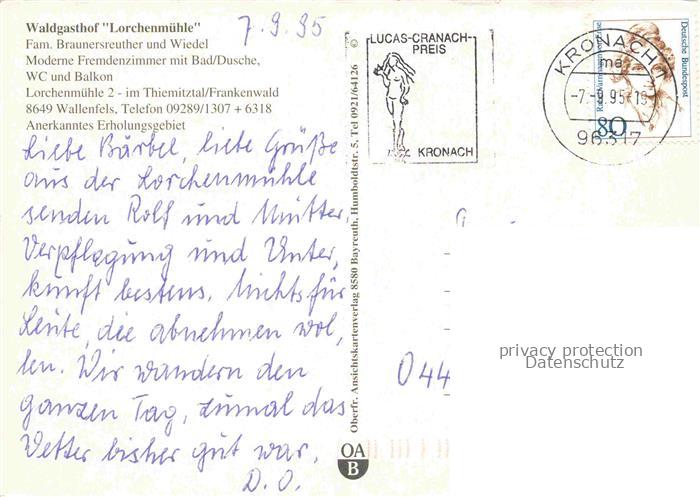 Waldgasthof "Lorchenmühle"
Fam. Braunersreuther und Wiedel
Moderne Fremdenzimmer mit Bad/Dusche,
WC und Balkon
Lorchenmühle 2 - im Thiemitztal/Frankenwald
8649 Wallenfels, Telefon 09289/1307 + 6318
Anerkanntes Erholungsgebiet
7.9.95
Liebe Bärbel, liebe Grüße
aus der Lorchenmühle
senden Rolf und Mutter.
Verpflegung und Unter,
kunft bestens. Nichts für
Leute, die abnehmen wol,
len. Wir wandern den
ganzen Tag, zumal das
Wetter bisher gut war.
D. O.
Oberfr. Ansichtskartenverlag 8580 Bayreuth, Humboldtstr. 5, Tel 0921/64126 ©
OA
B
LUCAS-CRANACH-
PREIS
KRONACH
KRONACH 1
ma
-7.-9.95-19
96317
Deutsche Bundespost
80
044
privacy protection
Datenschutz